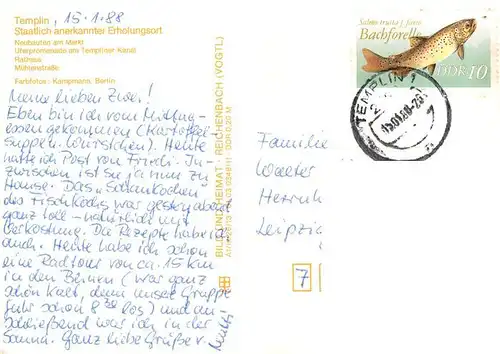 Templin, 15.1.88
Staatlich anerkannter Erholungsort
Neubauten am Markt
Uferpromenade am Templiner Kanal
Rathaus
Mühlenstraße
Farbfotos: Kampmann, Berlin
Meine lieben Zwei!
Eben bin ich vom Mittag-
essen gekommen (Kartoffel-
suppe, Würstchen). Heute
hatte ich Post von Friedi. In-
zwischen ist sie ja nun zu
Hause. Das "Schaukochen"
des Fischkochs war gestern abend
ganz toll – natürlich mit
Verkostung. Die Rezepte habe ich
auch. Heute habe ich schon
eine Radtour von ca. 15 km
in den Beinen (war ganz
schön kalt, denn unsere Gruppe
fuhr schon 8 30 los) und an-
schließend war ich in der
Sauna. Ganz liebe Grüße v.
Mutti!
BILD UND HEIMAT REICHENBACH (VOGTL)
Salmo trutta f. fario
Bachforelle
DDR 10
TEMPLIN 1
15.01.88-20
Familie
Walter
Leipzig
7